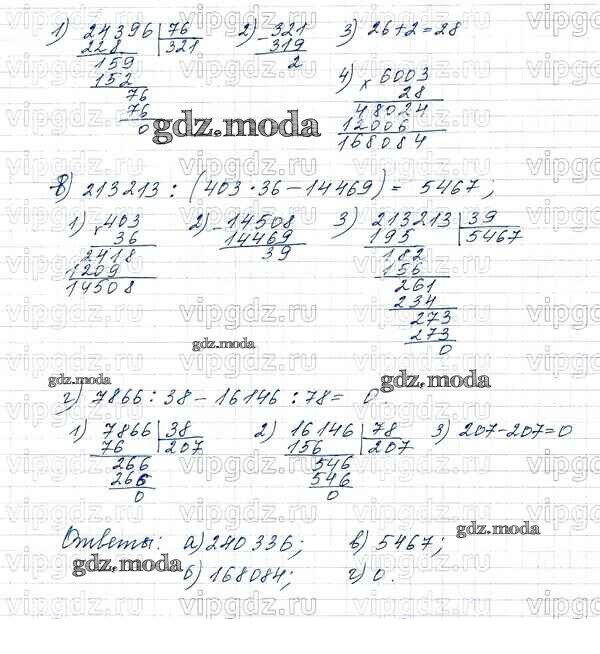 1) 24396 | 76   2) - 321   3) 26+2=28
228   321   319
159   2
152   4) x 6003
76   28
76   48024
0   12006
168084
в) 213213 : (403 · 36 - 14469) = 5467;
1) x 403   2) - 14508   3) 213213 | 39
36   14469   195   5467
2418   39   182
1209   156
14508   261
234
273
273
0
г) 7866 : 38 - 16146 : 78 = 0
1) 7866 | 38   2) 16146 | 78   3) 207-207=0
76   207   156   207
266   546
266   546
0   0
Ответы: а) 240336;   в) 5467;
б) 168084;   г) 0.
gdz.moda
gdz.moda
gdz.moda
gdz.moda
gdz.moda
gdz.moda
vipgdz.ru